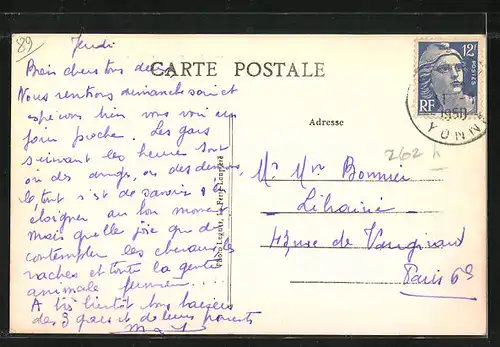 89
Jeudi
Bien chers tous deux
CARTE POSTALE
Nous rentrons dimanche soir et
espérons bien vous voir un
jour proche. Les gars
suivant les heures sont
ou des anges, ou des démons,
le tout est de savoir s'
éloigner au bon moment
mais quelle joie que de
contempler les chevaux, les
vaches et toute la gente
animale fermière....
A très bientôt bons baisers
des 3 gars et de leurs parents
Adresse
Mr Mme Bonnier
Librairie
43 rue de Vaugirard
Paris 6e
262
12F
POSTES
RF
1950
YONNE